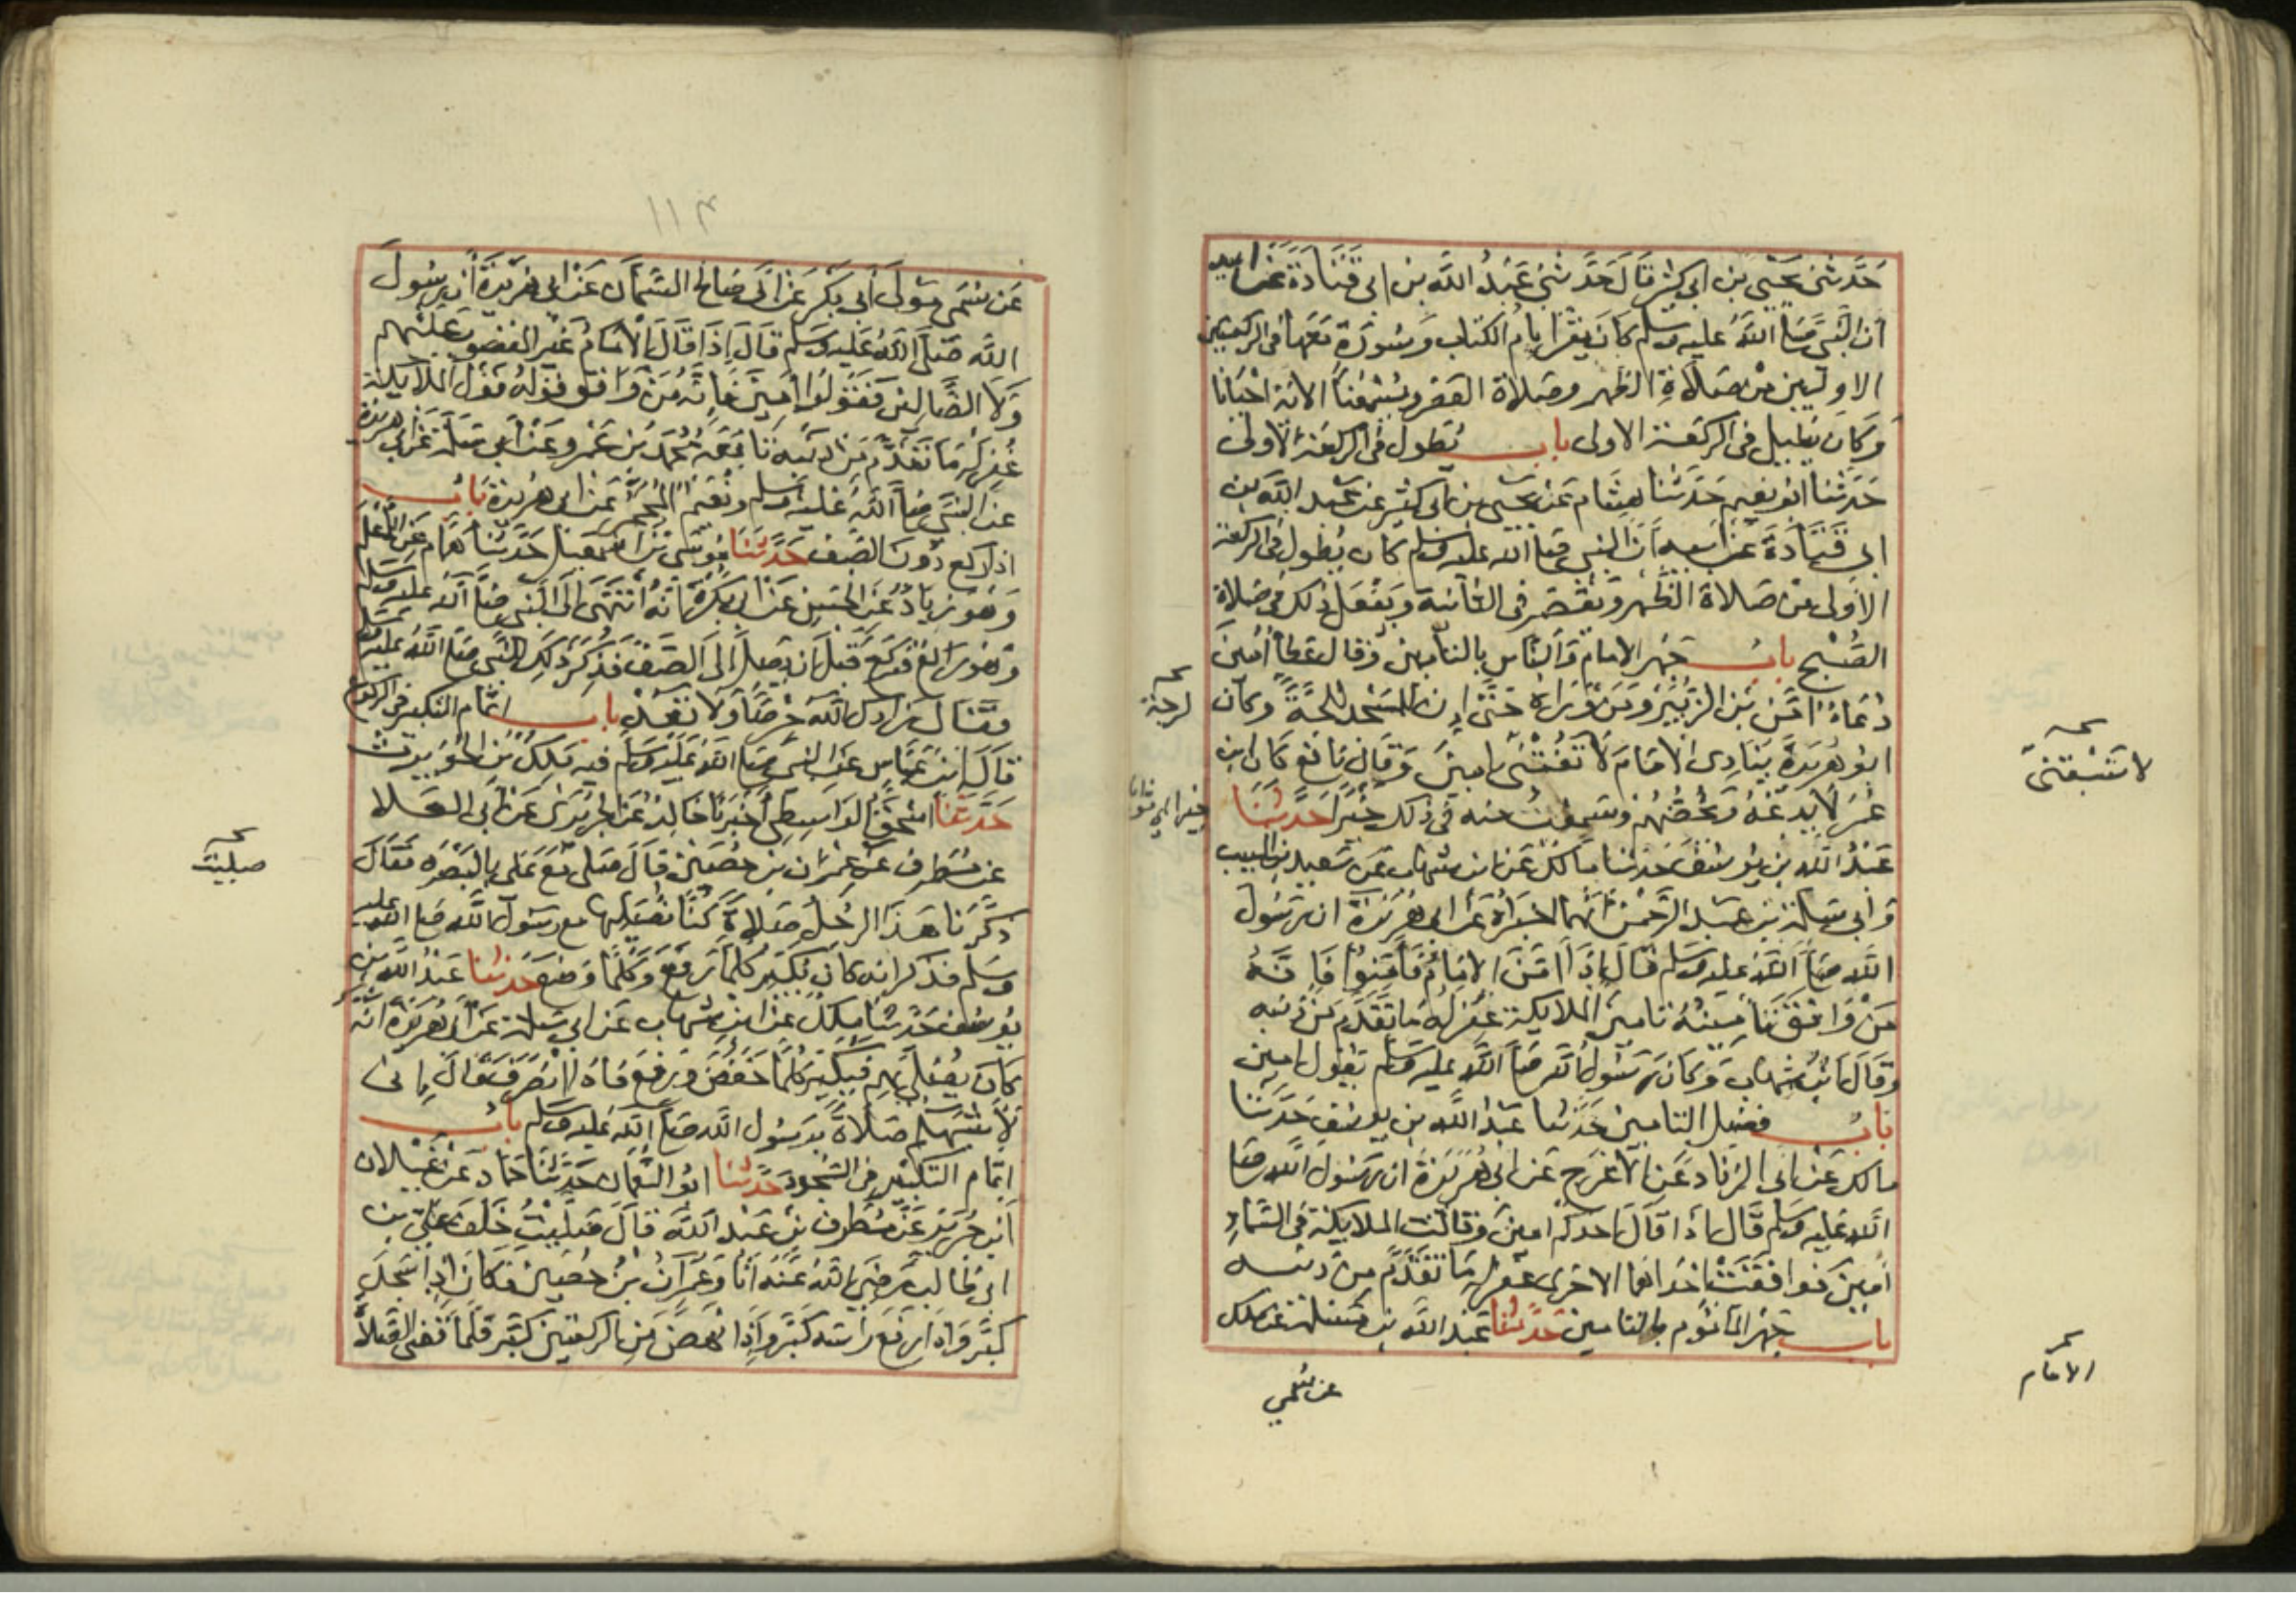 حَدَّثني يحيى بن ابي كثير قال حَدَّثني عَبْدُ اللَّه بن ابي قتادة عن ابيه
ان النَّبي صَلى اللهُ عليه وسلم كان يقرا بام الكتاب وسُورَة مَعَها في الركعتين
الاوليين من صَلاة الظهر وصَلاة العَصْر ويسمعنا الاية احيانا
وكان يُطيل في الركعَة الاولى باب يُطول في الركعة الاولى
حَدَّثنا ابو نعيم حَدثنا هشام عن يحيى بن ابي كثير عن عَبد الله بن
ابي قتادة عَن ابيه ان النبي صلى الله عليه وسلم كان يُطول في الركعة
الاولى من صَلاة الظهر ويقصر في الثانية ويَفعل ذلك في صَلاة
الصُّبح بابُ جَهر الامام والناس بالتأمين وقال عَطا امين
دُعاء امَّن بن الزبَير ومَن وَراه حَتى ان للمسجد للجَّةً وكان
ابو هريرة ينادي الامام لا تفُتْني بامين وقال نافع كان ابن
عُمَر لا يدعهُ ويحُضُّهم وسَمعت منه في ذلك خَبرًا حَدَّثنا
عَبْدُ الله بن يوسُف حَدثنا مالك عَن ابن شهاب عَن سَعيد بن المسيب
وابي سَلمة بن عَبد الرَّحمن انهما اخبراه عَن ابي هُرَيرَة ان رَسُول
اللَّه صلى اللهُ عليه وسَلم قال اِذا امَّنَ الامام فامِّنوا فانه
مَنْ وَافق تَامينُهُ تامينَ الملايكة غفر لهُ ما تقدَّم من ذنبه
وقال ابن شهاب وكان رَسُول الله صَلى اللَّه عليه وسلم يقول امين
بابُ فضل التامين حَدَّثنا عَبْدُ الله بن يوسُف حَدثنا
مالك عَن ابي الزناد عَن الاعرَج عَن ابي هُرَيرَةَ ان رَسُول الله صَلى
اللهُ عَليه وسَلم قال اذا قال احدكم امين وقالت الملايكة في السَّماءِ
امين فوافقت احداهما الاخرى غفر له مَا تقدَّم من ذنبه
باب جَهر المأموم بالتامين حَدَّثنا عَبد الله بن مَسْلمة عن ملك
عن سُمَي
لرجَّةً
خيرا
لا تَسْبِقني
الامام
١١٣
عَن سُمَي مَولى أبي بَكر عَن ابي صَالح السَّمان عَن ابي هُرَيرَة ان رسُول
اللَّه صَلَّى اللهُ عَليه وسَلم قال اِذا قال الامام غير المغضوب عَليهم
وَلا الضَّالين فقولُوا امين فانه مَنْ وَافق قولهُ قَول الملايكة
غُفر لَه مَا تقدَّم مِن ذنبه تابعَهُ محُمد بن عَمرو عَن أبي سَلمة عن ابي هريرة
عن النَّبي صَلى اللهُ عَليه وسلم ونُعَيم المُجمِر عَن ابي هُرَيرة بابُ
اذا ركع دُونَ الصَف حَدَّثنا مُوسَى بن اسمعيل حَدَّثنا همَّام عَن الاعلم
وَهُوَ زيادٌ عَن الحسَن عَن ابي بكرَة انه انتهى الى النَّبي صَلى اللهُ عليه وسلم
وَهُو رَاكع فركعَ قبل ان يصِل الى الصَّف فذكر ذلك للنَّبي صَلى اللهُ عليه وسلم
فقال زادك الله حِرْصًا ولا تعُدْ باب اتمام التكبير في الركوع
قال ابن عَبَّاس عَن النبي صَلى اللهُ عَليه وسَلم فيه مَلِكُ بن الحُويرث
حَدَّثنا اسحق الواسِطي اخبَرنا خالدٌ عَن الجرَيري عَن ابي العَلا
عن مُطرف عَن عمران بن حُصَين قال صَلى مَع عَلي بالبَصْرة فقال
ذكَّرَنا هَذا الرجُلُ صَلاة كنا نُصَليها مع رسول الله صَلى الله عليه
وسَلم فذكر انه كان يُكبر كلما رفع وكلما وضعَ حَدثنا عَبْدُ الله بن
يوسُف حَدثنا مَلك عَن ابن شهاب عَن ابي سَلمة عَن ابي هُرَيرة انه
كان يُصَلي بهم فيكبر كلما خفض ورفع فاذا انصَرف قال اِني
لأشبَهُكم صَلاةً برسُول الله صَلى الله عَليه وسَلم بابُ
اتمام التكبير في السُّجود حَدَّثنا ابو النُّعمان حَدَّثنا حَماد عَن غَيلان
ابن جَرير عَن مُطرف بن عَبْد الله قال صَلَّيْتُ خَلف عَلي بن
ابي طالب رَضي اللهُ عَنه انا وعمرانُ بنُ حُصَين فكان اِذا سَجَد
كبَّر واذا رَفع رَاسَه كبَّر واِذا نهَض مِن الركعتين كبَّر فلما قضى الصَّلاةَ
صليت